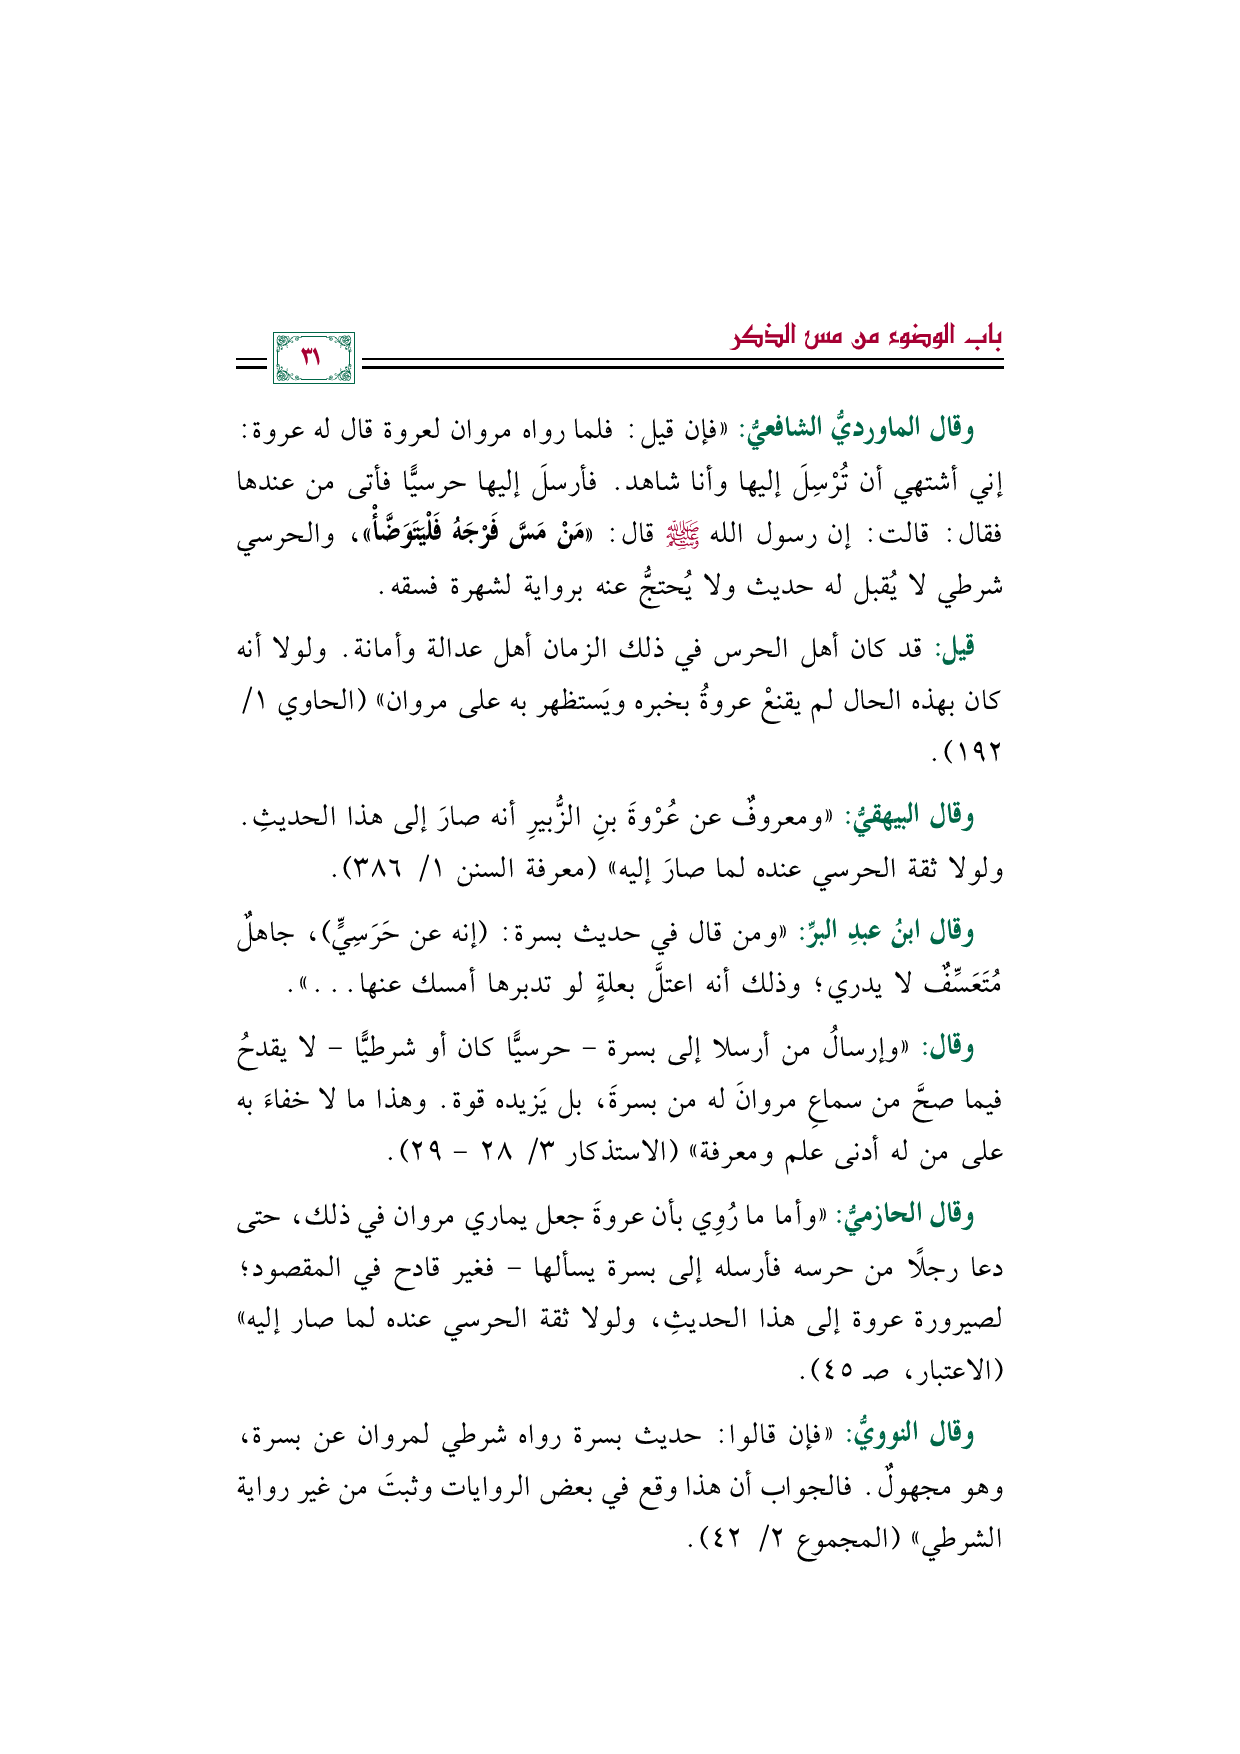 باب الوضوء من مس الذكر
٣١
وقال الماورديُّ الشافعيُّ: «فإن قيل: فلما رواه مروان لعروة قال له عروة:
إني أشتهي أن تُرْسِلَ إليها وأنا شاهد. فأرسلَ إليها حرسيًّا فأتى من عندها
فقال: قالت: إن رسول الله ﷺ قال: «مَنْ مَسَّ فَرْجَهُ فَلْيَتَوَضَّأْ»، والحرسي
شرطي لا يُقبل له حديث ولا يُحتجُّ عنه برواية لشهرة فسقه.
قيل: قد كان أهل الحرس في ذلك الزمان أهل عدالة وأمانة. ولولا أنه
كان بهذه الحال لم يقنعْ عروةُ بخبره ويَستظهر به على مروان» (الحاوي ١/
١٩٢).
وقال البيهقيُّ: «ومعروفٌ عن عُرْوةَ بنِ الزُّبيرِ أنه صارَ إلى هذا الحديثِ.
ولولا ثقة الحرسي عنده لما صارَ إليه» (معرفة السنن ١/ ٣٨٦).
وقال ابنُ عبدِ البرِّ: «ومن قال في حديث بسرة: (إنه عن حَرَسِيٍّ)، جاهلٌ
مُتَعَسِّفٌ لا يدري؛ وذلك أنه اعتلَّ بعلةٍ لو تدبرها أمسك عنها...».
وقال: «وإرسالُ من أرسلا إلى بسرة – حرسيًّا كان أو شرطيًّا – لا يقدحُ
فيما صحَّ من سماعِ مروانَ له من بسرةَ، بل يَزيده قوة. وهذا ما لا خفاءَ به
على من له أدنى علم ومعرفة» (الاستذكار ٣/ ٢٨ – ٢٩).
وقال الحازميُّ: «وأما ما رُوِي بأن عروةَ جعل يماري مروان في ذلك، حتى
دعا رجلًا من حرسه فأرسله إلى بسرة يسألها – فغير قادح في المقصود؛
لصيرورة عروة إلى هذا الحديثِ، ولولا ثقة الحرسي عنده لما صار إليه»
(الاعتبار، صـ ٤٥).
وقال النوويُّ: «فإن قالوا: حديث بسرة رواه شرطي لمروان عن بسرة،
وهو مجهولٌ. فالجواب أن هذا وقع في بعض الروايات وثبتَ من غير رواية
الشرطي» (المجموع ٢/ ٤٢).